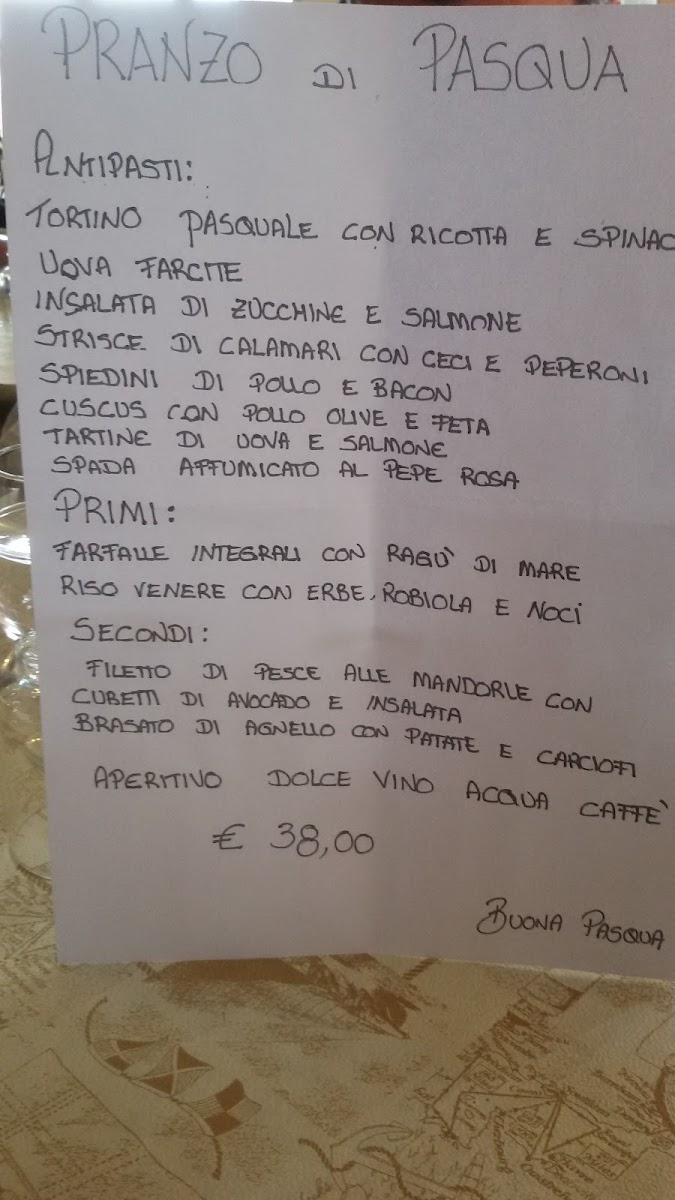 PRANZO DI PASQUA
ANTIPASTI:
TORTINO PASQUALE CON RICOTTA E SPINAC
UOVA FARCITE
INSALATA DI ZUCCHINE E SALMONE
STRISCE DI CALAMARI CON CECI E PEPERONI
SPIEDINI DI POLLO E BACON
CUSCUS CON POLLO OLIVE E FETA
TARTINE DI UOVA E SALMONE
SPADA AFFUMICATO AL PEPE ROSA
PRIMI:
FARFALLE INTEGRALI CON RAGÙ DI MARE
RISO VENERE CON ERBE, ROBIOLA E NOCI
SECONDI:
FILETTO DI PESCE ALLE MANDORLE CON
CUBETTI DI AVOCADO E INSALATA
BRASATO DI AGNELLO CON PATATE E CARCIOFI
APERITIVO DOLCE VINO ACQUA CAFFÈ
€ 38,00
BUONA PASQUA